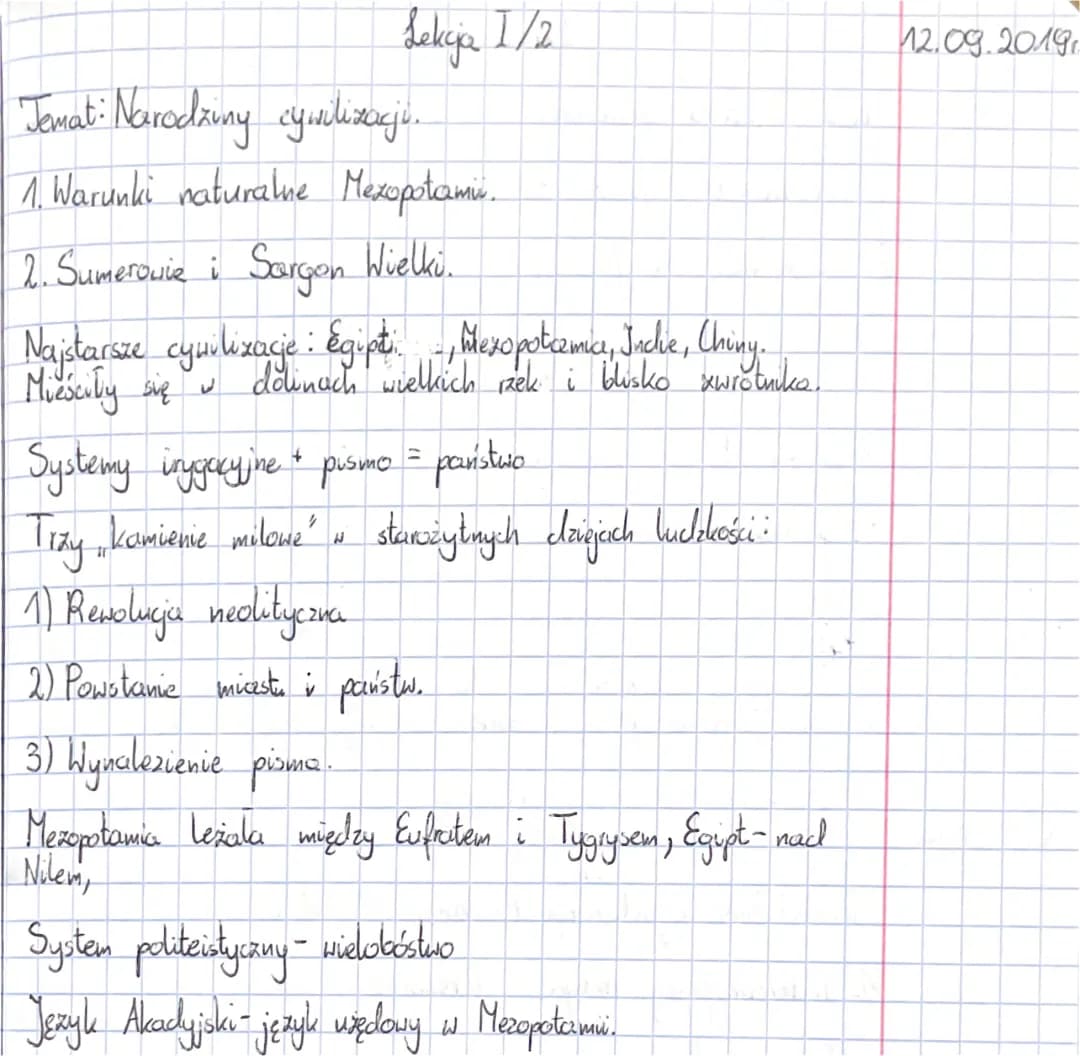 Lekcja I/2
12.09.2019r.
Temat: Narodziny cywilizacji.
1. Warunki naturalne Mezopotamii.
2. Sumerowie i Sargon Wielki.
Najstarsze cywilizacje: Egipt, Mezopotamia, Indie, Chiny.
Mieściły się w dolinach wielkich rzek i blisko zwrotnika.
Systemy irygacyjne + pismo = państwo
Trzy „kamienie milowe" w starożytnych dziejach ludzkości:
1) Rewolucja neolityczna
2) Powstanie miast i państw.
3) Wynalezienie pisma.
Mezopotamia leżała między Eufratem i Tygrysem, Egipt- nad
Nilem,
System politeistyczny- wielobóstwo
Język Akadyjski- język użędowy w Mezopotamii.